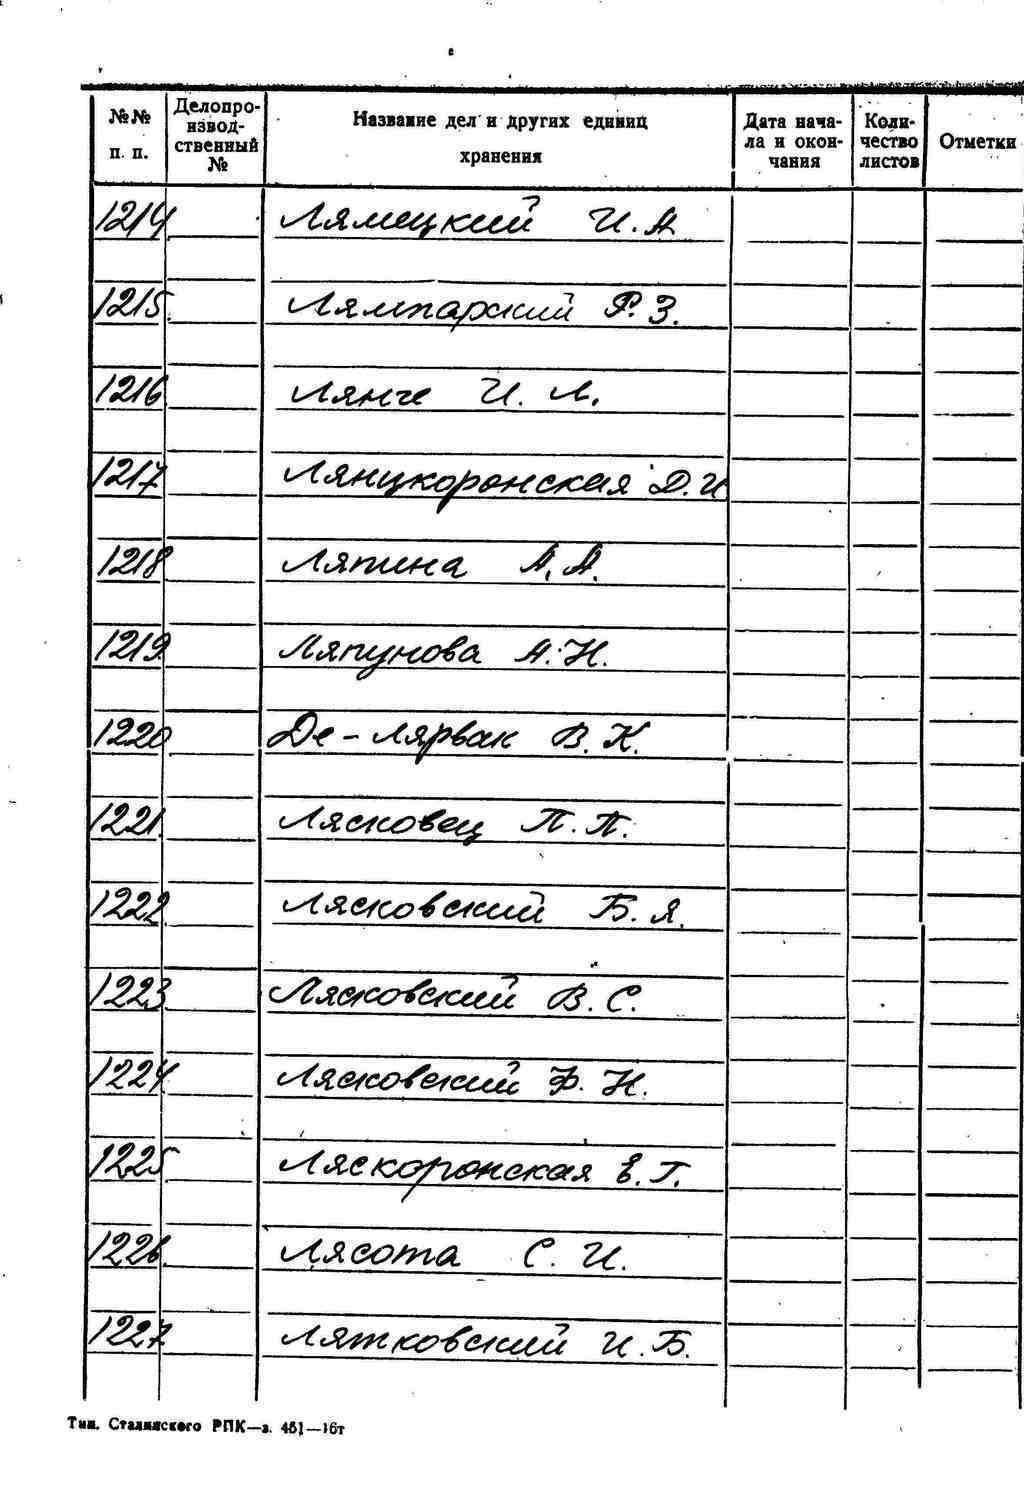 №№ п. п. Делопроизводственный № Название дел и других единиц хранения Дата начала и окончания Количество листов Отметки
1214 Лямецкий И. А
1215 Лямпарский Р. З.
1216 Лянче И. Л.
1217 Лянцкоронская Д. И
1218 Ляпина А. А.
1219 Ляпунова А. Н.
1220 Де-Лярвак В. К.
1221 Лясковец П. П.
1222 Лясковский Б. Я.
1223 Лясковский В. С.
1224 Лясковский Ф. Н.
1225 Ляскоронская Е. Г.
1226 Лясота С. И.
1227 Лятковский И. Б.
Тип. Сталинского РПК—з. 451—16т